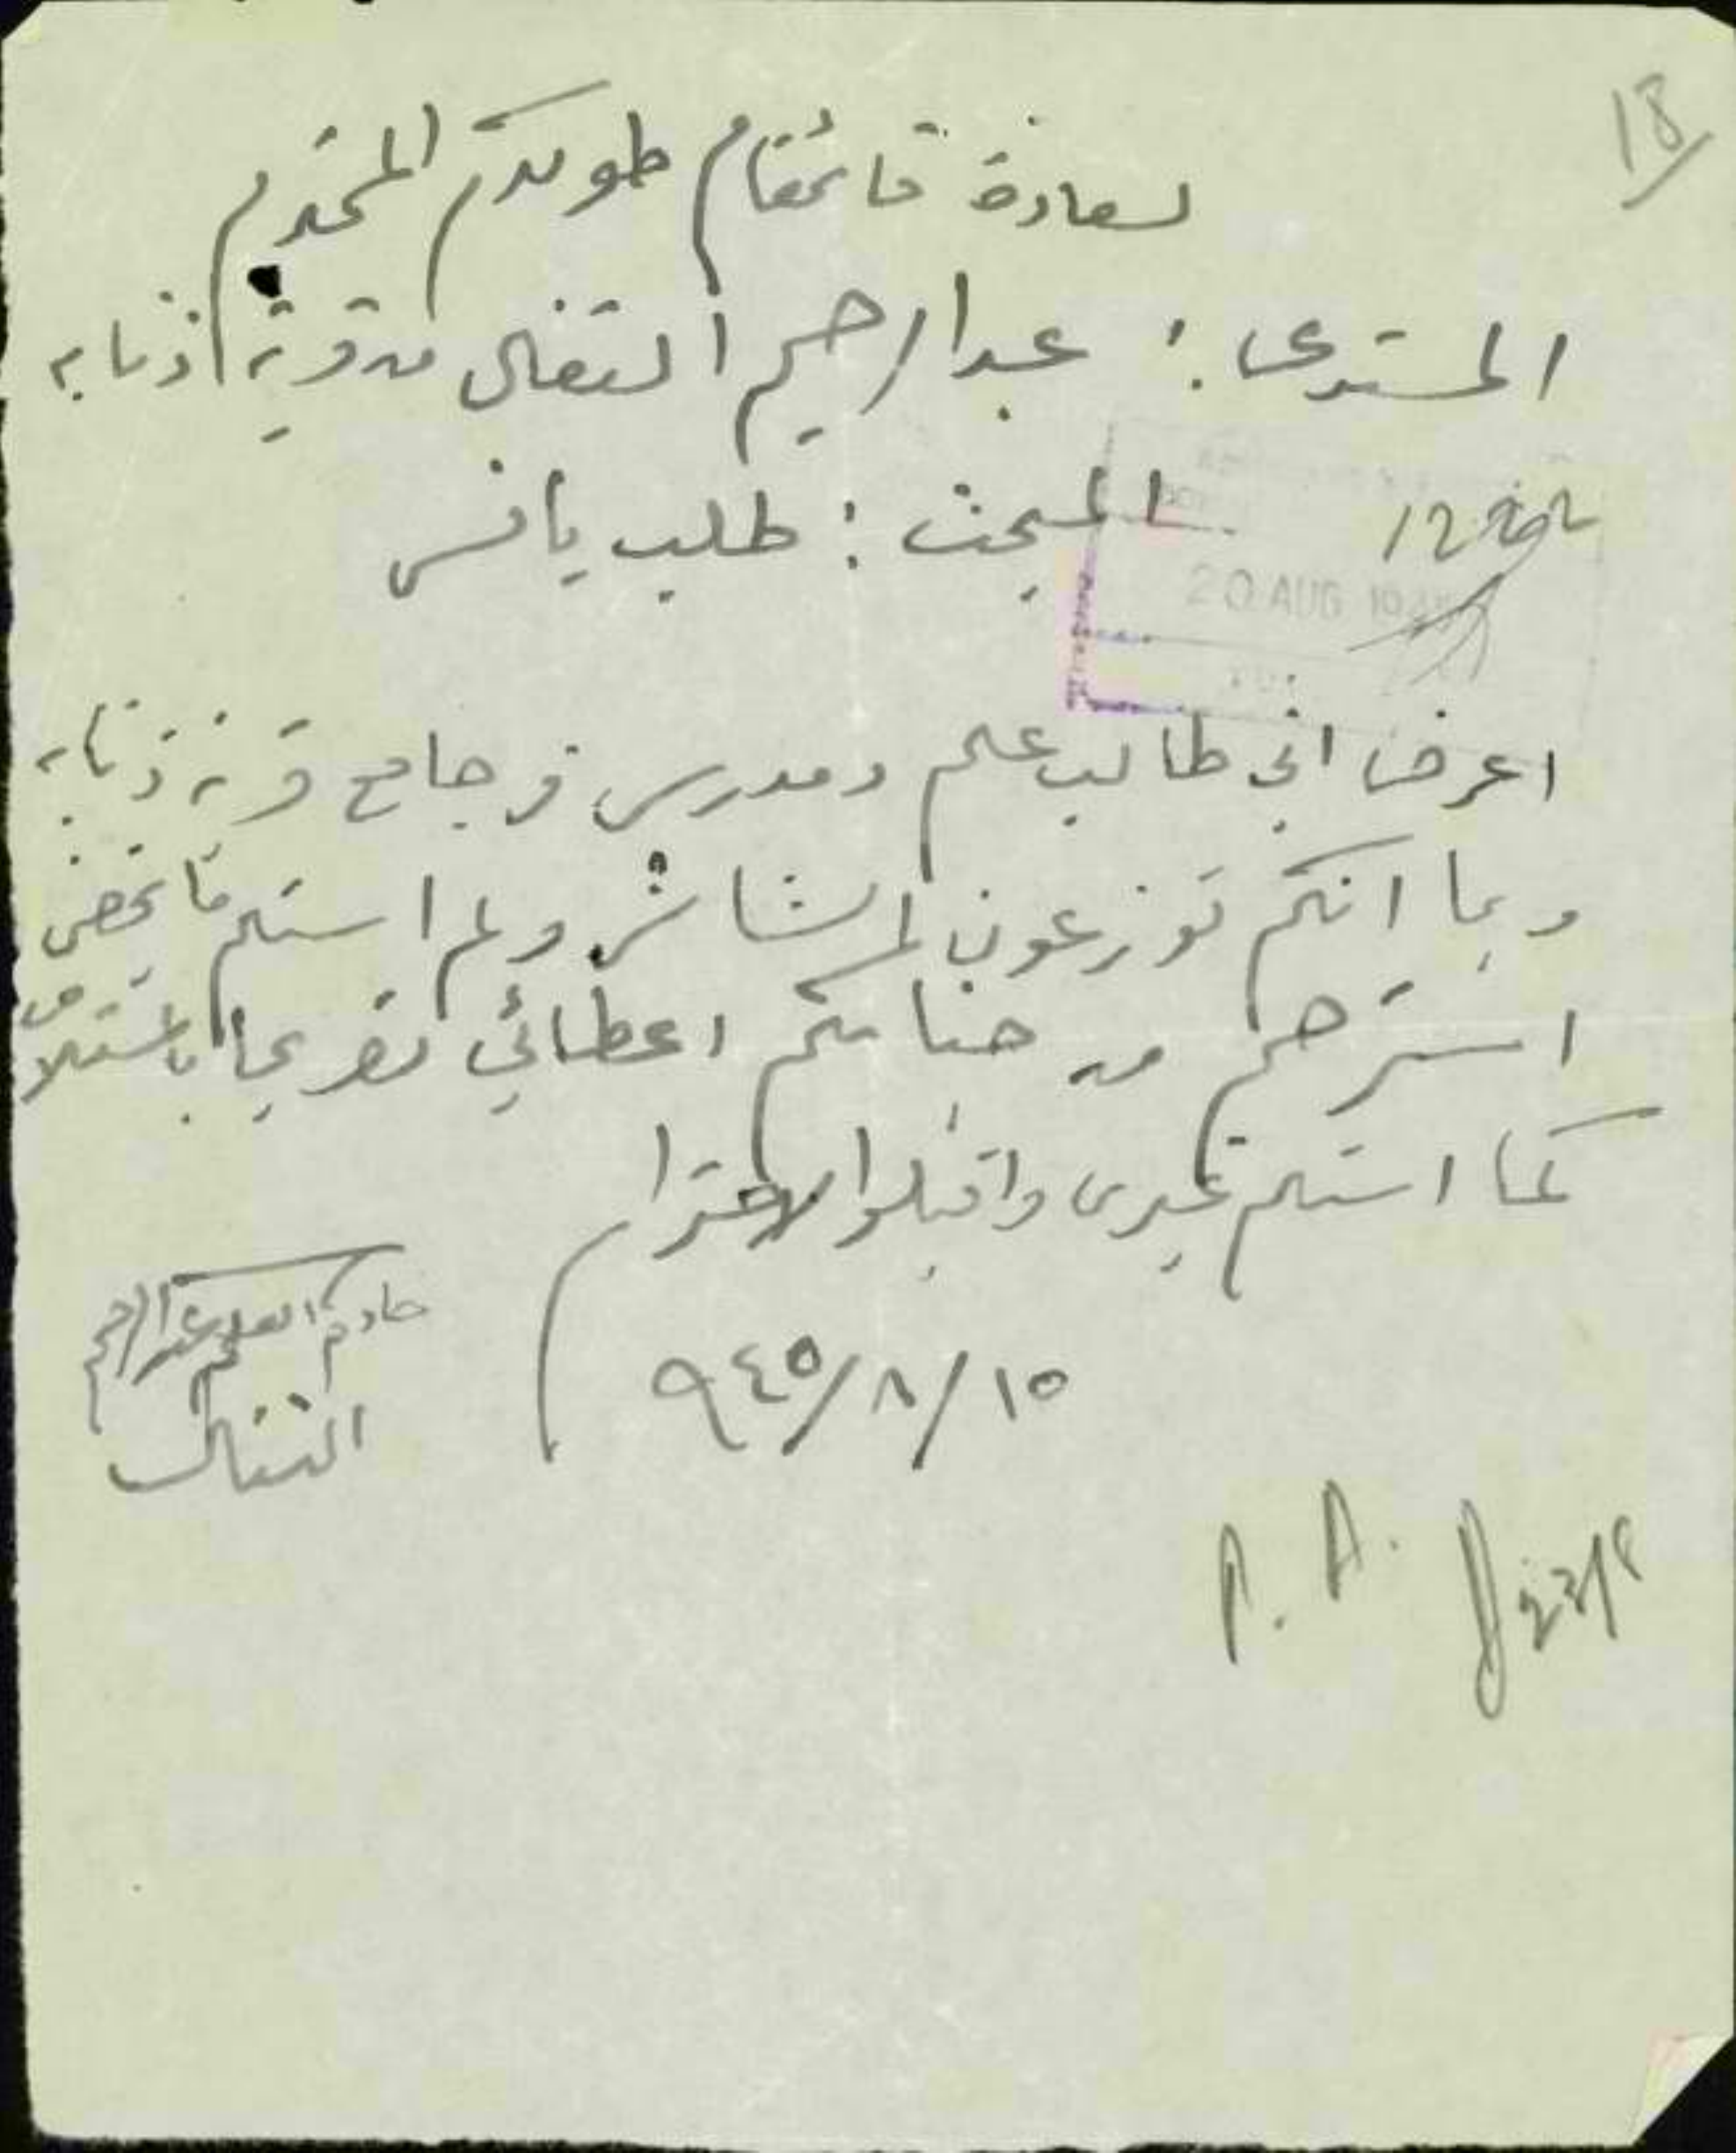 18
لسعادة قائمقام طولكرم المحترم
المستدعي : عبدالرحيم التفال من قرية اذنابه
المبحث : طلب يانس
20 AUG 1945
اعرض اني طالب علم ومدرس في جامع قرية ذنابه
وبما انكم توزعون الشاش ولم استلم ما يخصني
استرحم من جنابكم اعطائي تصريحا باستلام
كما استلم غيري واقبلوا الاحترام
١٥/٨/٩٤٥
خادم العلم عبدالرحيم
P. A.